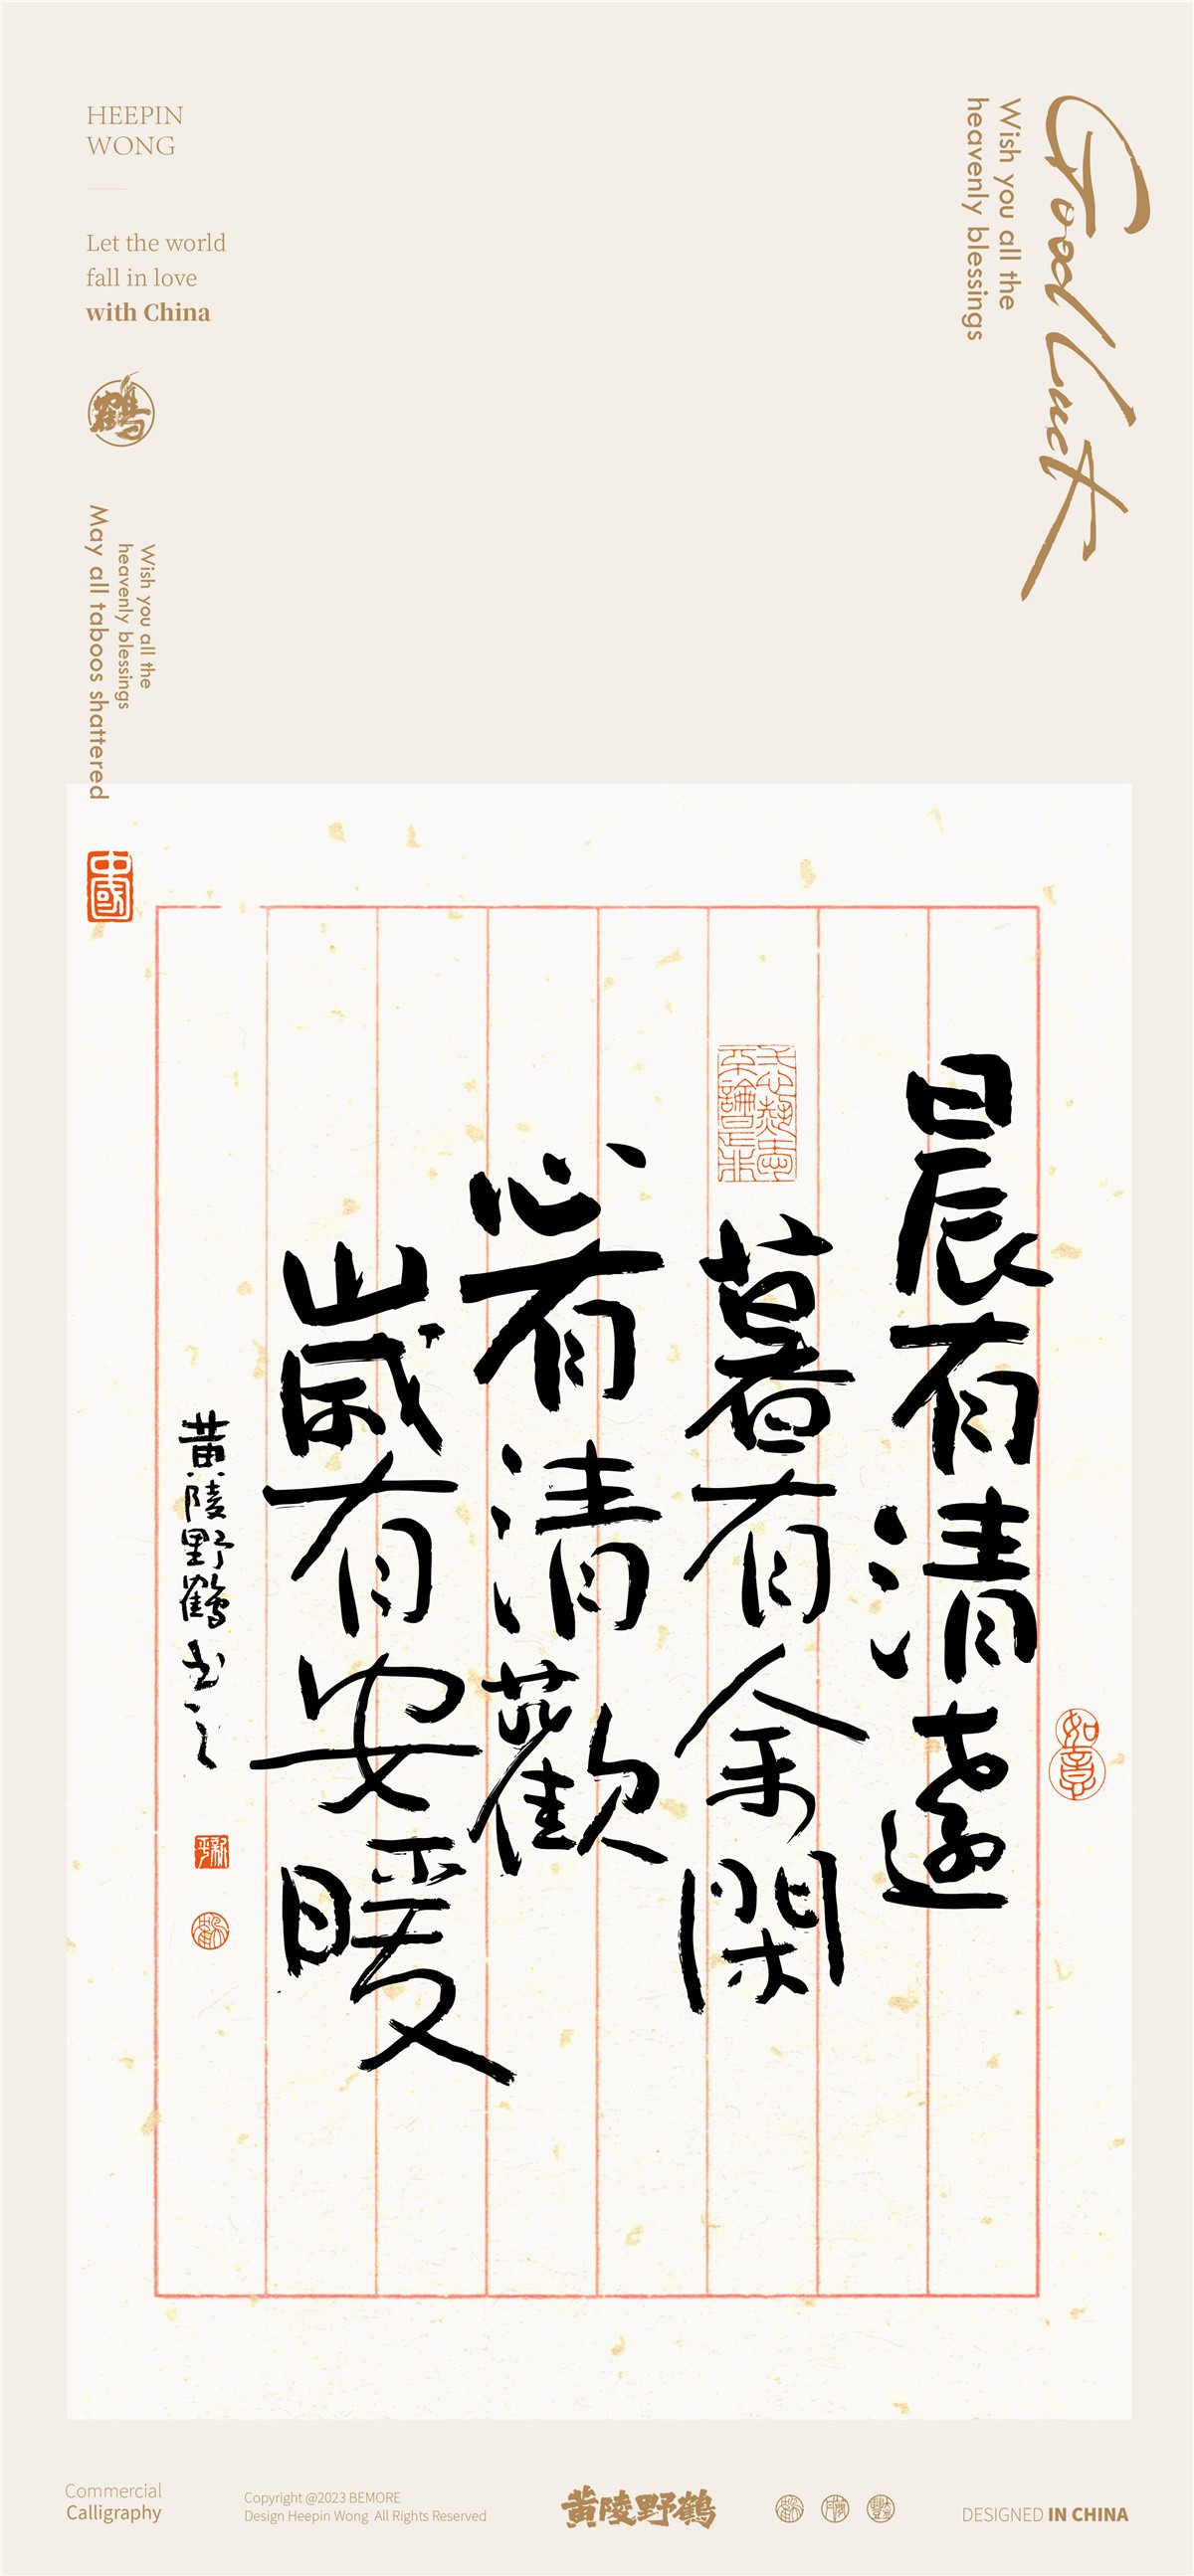 HEEPIN
WONG
Let the world
fall in love
with China
鶴
Good Luck
Wish you all the
heavenly blessings
Wish you all the
heavenly blessings
May all taboos shattered
中國
晨有清逺
暮有余閑
心有清歡
歲有安暖
黄陵野鶴书之
如意
Commercial
Calligraphy
Copyright @2023 BEMORE
Design Heepin Wong All Rights Reserved
黄陵野鶴
DESIGNED IN CHINA